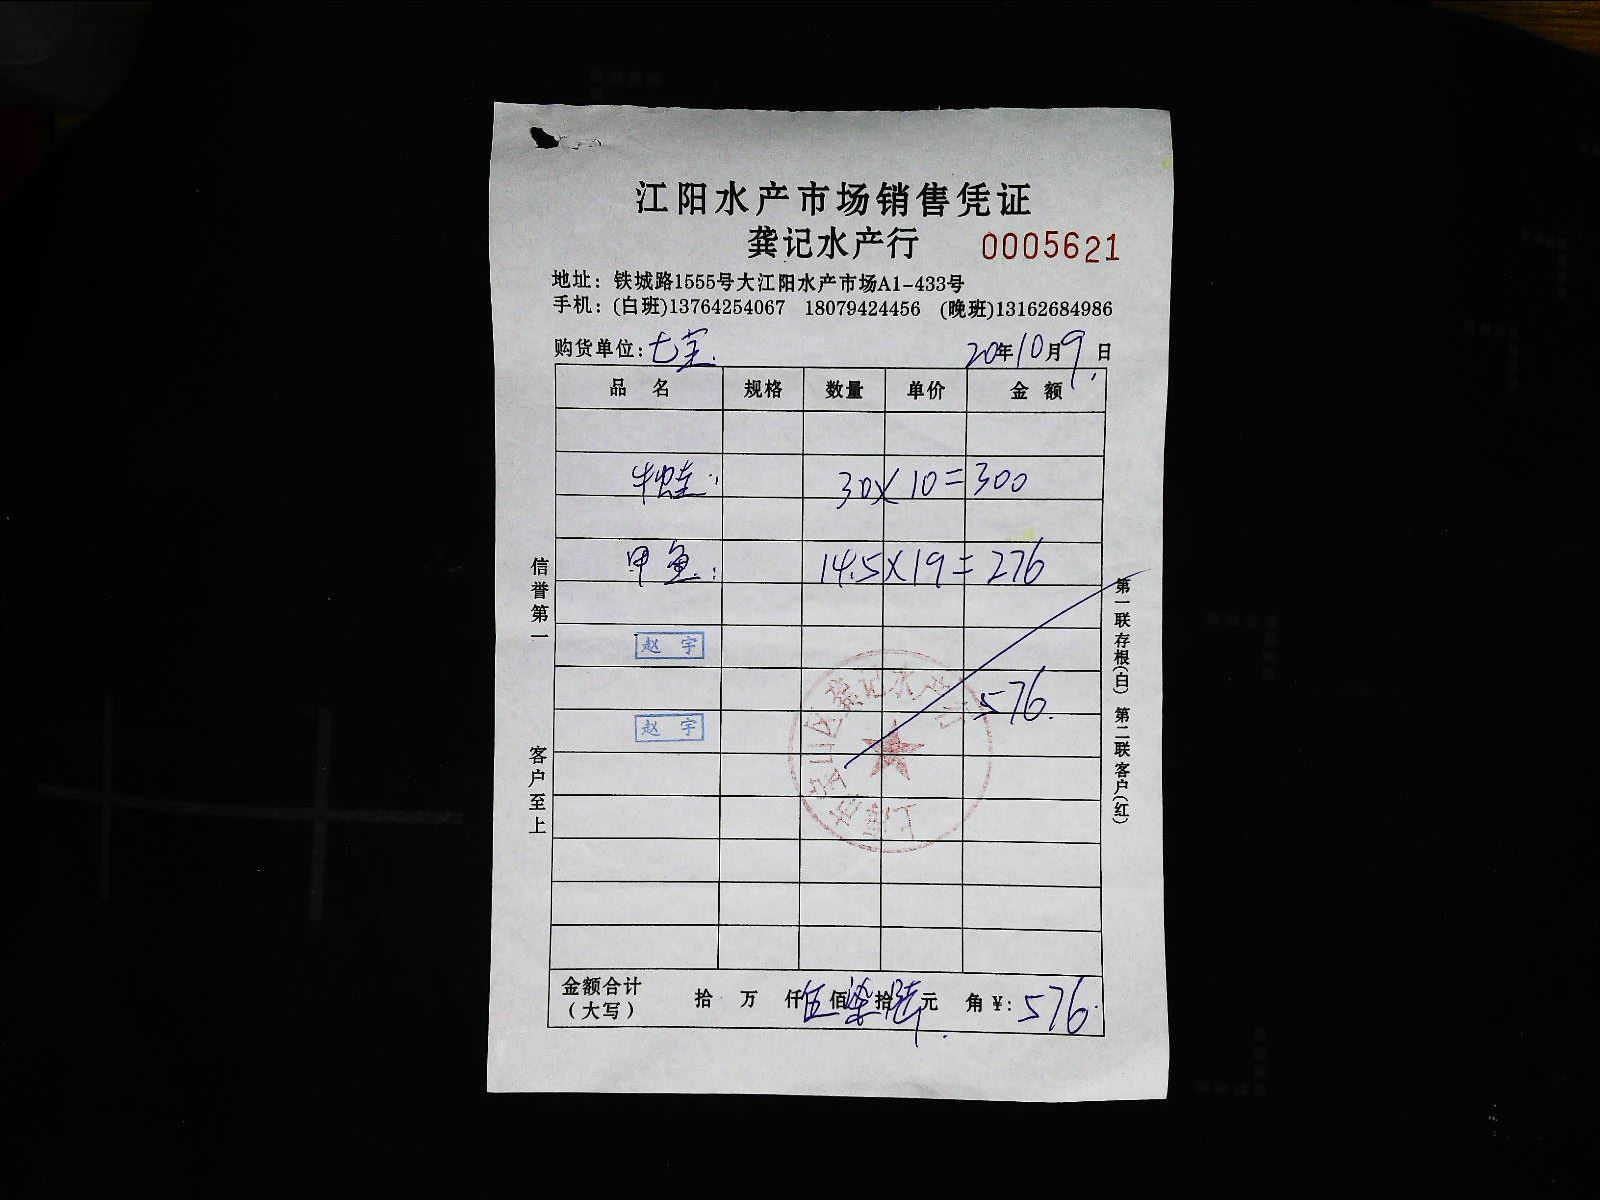 江阳水产市场销售凭证
龚记水产行 0005621
地址：铁城路1555号大江阳水产市场A1-433号
手机：(白班)13764254067 18079424456 (晚班)13162684986
购货单位：七宝 20年10月9日
品 名 规格 数量 单价 金 额
牛蛙 30×10=300
甲鱼 14.5×19=276
赵 宇
576
赵 宇
上海市宝山区龚记水产行
金额合计(大写) 拾 万 仟伍佰柒拾陆元 角 ¥：576
信誉第一 客户至上
第一联存根(白) 第二联客户(红)